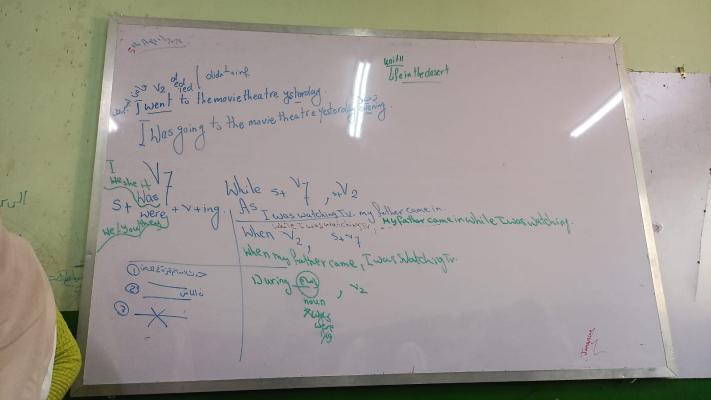 Unit 11
Life in the desert
V2 d ed ied | didn't + inf.
I went to the movie theatre yesterday.
I was going to the movie theatre yesterday evening.
I
He she it
V7
S + was
were + v + ing.
We / you / they
While S + V7 , S + V2
As
I was watching Tv. my father came in.
While I was watching Tv. - My father came in while I was watching.
When V2 , S + V7
When my father came, I was watching Tv.
During , V2
noun
was
were
ing
①
②
③